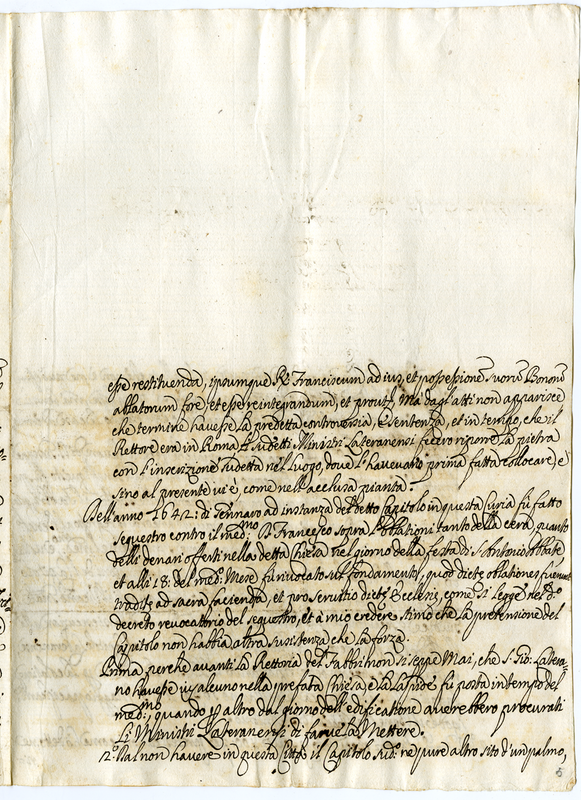 esse restituenda, ipsumque R. Franciscum ad ius, et possessione suorũ Bonorũ
ablatorum fore, et esse reintegrandum, et prout. Ma dagl'atti non apparisce
che termine havesse la predetta controversia, e sentenza, et in tempo, che il
Rettore era in Roma li sudetti Ministri Lateranensi fecero riporre la pietra
con l'inscrizione sudetta nel luogo, dove l'havevano prima fatta collocare, e
sino al presente vi è, come nell'acclusa pianta.
Dell'anno 1642: di Gennaro ad instanza del detto Capitolo in questa Curia fù fatto
sequestro contro il med.mo D. Francesco sopra l'oblationi tanto della cera, quanto
delli denari offerti nella detta Chiesa nel giorno della festa di S. Antonio Abbate
et alli 18. del med.o Mese fù rivocato sul fondamento, quod dictę oblationes fuerunt
traditę ad sacra facienda, et pro servitio dictę Ecclesię, come si legge nel d.o
decreto revocatorio del sequestro, et à mio credere stimo che la pretensione del
Capitolo non habbia altra sussistenza che la forza.
Prima perche avanti la Rettoria del Fabbri non si seppe mai, che S. Gio: Latera-
no havesse ius alcuno nella prefata Chiesa, e la lapide fù posta in tempo del
med.mo, quando p altro dal giorno dell'edificatione averebbero procurati
li Ministri Lateranensi di farvela mettere.
2.o Dal non havere in questa Città il Capitolo sud.o ne pure altro sito d'un palmo,